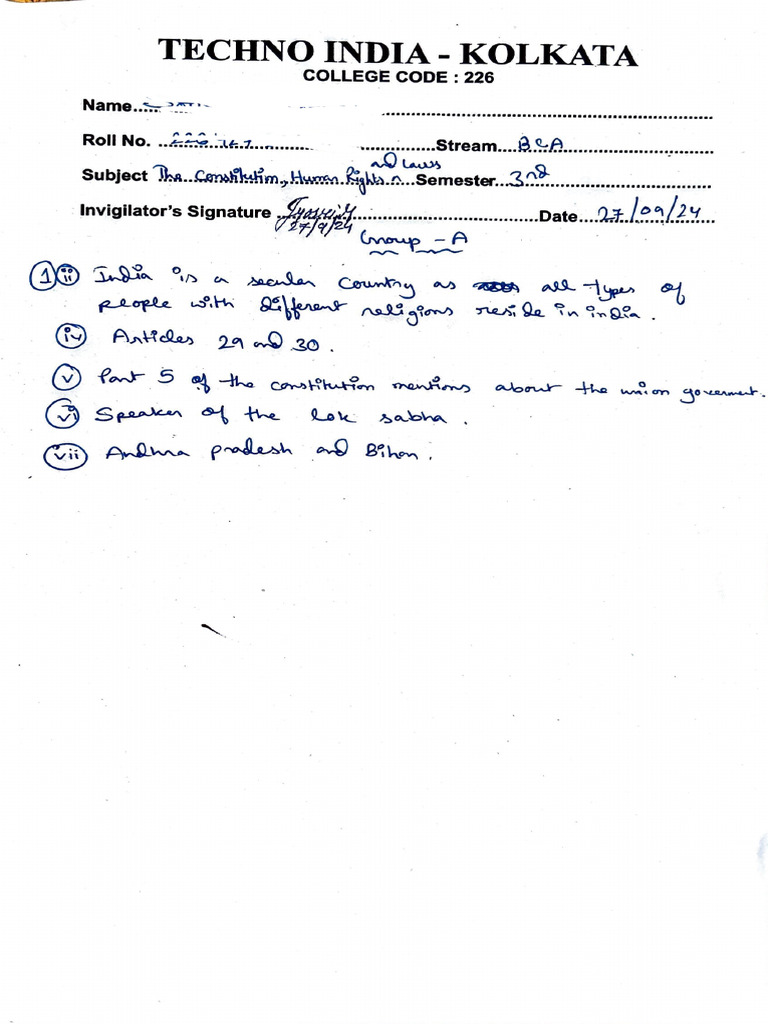 TECHNO INDIA - KOLKATA
COLLEGE CODE : 226
Name
Roll No. Stream BCA
and Laws
Subject The Constitution, Human Rights Semester 3rd
Invigilator's Signature Date 27/09/24
27/9/24
Group - A
1 ii India is a secular country as all types of
people with different religions reside in india.
iv Articles 29 and 30.
v Part 5 of the constitution mentions about the union goverment.
vi Speaker of the lok sabha.
vii Andhra pradesh and Bihar.